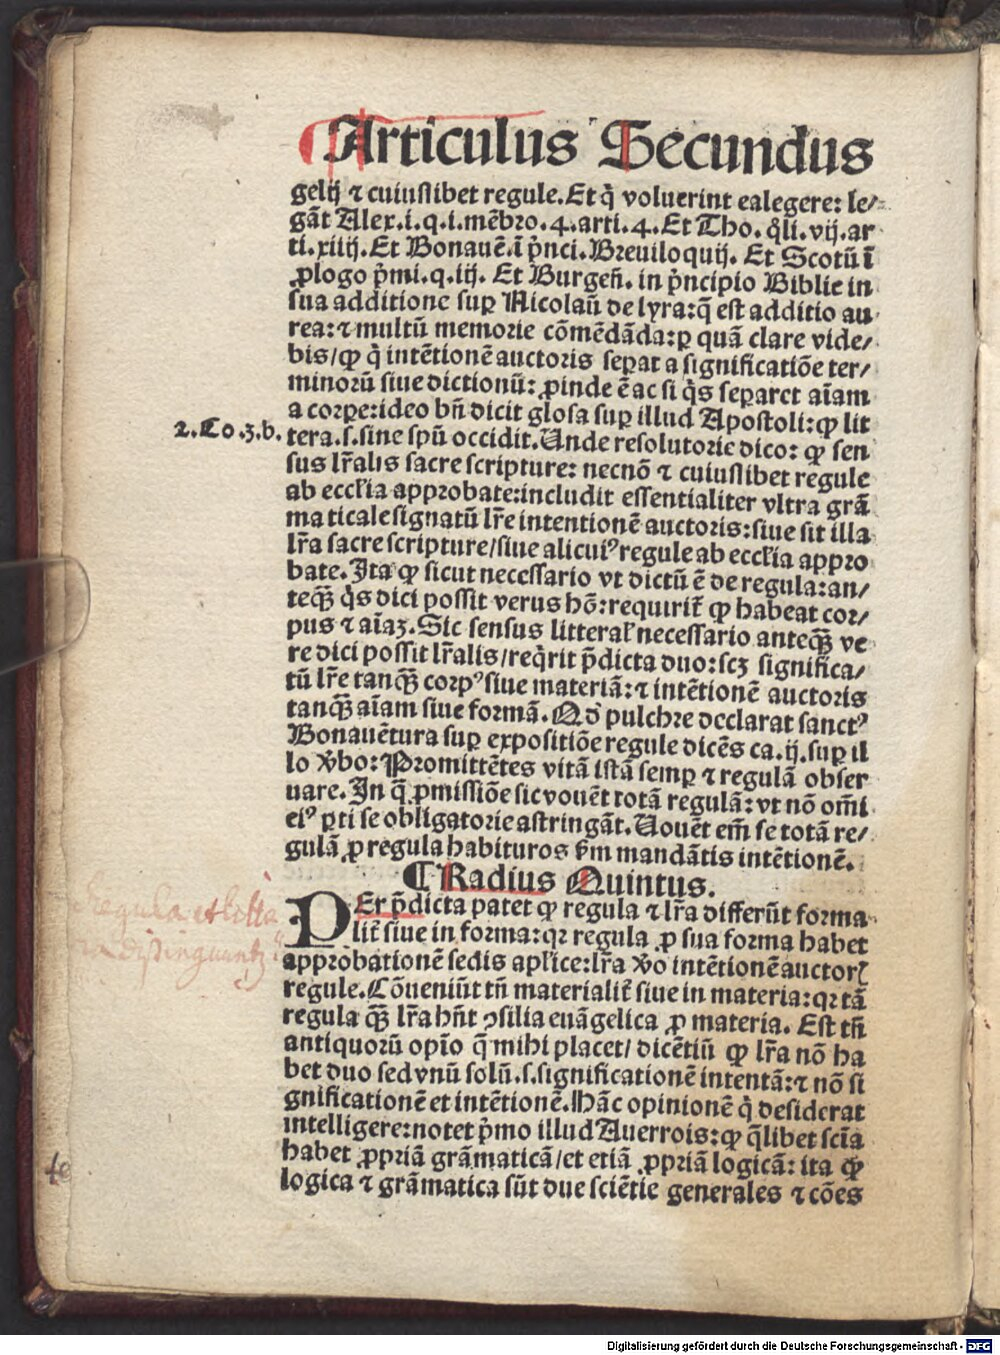 Articulus Secundus
gelij ⁊ cuiuslibet regule. Et q̇ voluerint ea legere: le/
gāt Alex. i. q. i. mēbro. 4. arti. 4. Et Tho. q̇li. vij. ar
ti. xiiij. Et Bonauē. ī p̄nci. Breuiloquij. Et Scotū ī
ꝓlogo p̄mi. q. iij. Et Burgeñ. in p̄ncipio Biblie in
sua additione suꝑ Nicolaū de lyra: q̄ est additio au
rea: ⁊ multū memorie cōmēdāda: ꝑ quā clare vide/
bis/ ꝙ q̇ intētionē auctoris seꝑat a significatiōe ter/
minorū siue dictionū: ꝓinde ē ac si q̇s seꝑaret aīam
a corꝑe: ideo bñ dicit glosa suꝑ illud Apostoli: ꝙ lit
2. Co. 3. b. tera. s. sine spū occidit. Unde resolutorie dico: ꝙ sen
sus lr̄alis sacre scripture: necnō ⁊ cuiuslibet regule
ab eccl̄ia approbate: includit essentialiter vltra grā
maticale signatū lr̄e intentionē auctoris: siue sit illa
lr̄a sacre scripture/ siue alicuiꝰ regule ab eccl̄ia appro
bate. Ita ꝙ sicut necessario vt dictū ē de regula: an/
teqꝫ̄ q̇s dici possit verus hō: requirit̄ ꝙ habeat cor/
pus ⁊ aīaꝫ. Sic sensus litteral̓ necessario anteqꝫ̄ ve
re dici possit lr̄alis/ req̇rit p̄dicta duo: scꝫ significa/
tū lr̄e tanqꝫ̄ corpꝰ siue materiā: ⁊ intētionē auctoris
tanqꝫ̄ aīam siue formā. Qď pulchre declarat sanctꝰ
Bonauētura suꝑ expositiōe regule dicēs ca. ij. suꝑ il
lo v̓bo: Promittētes vitā istā semꝑ ⁊ regulā obser
uare. In q̄ ꝓmissiōe sic vouēt totā regulā: vt nō om̄i
eiꝰ ꝑti se obligatorie astringāt. Uouēt em̄ se totā re/
gulā ꝓ regula habituros ẜm mandātis intētionē.
¶ Radius Quintus.
PEr p̄dicta patet ꝙ regula ⁊ lr̄a differūt forma
Regula et litte
ra distinguuntꝫ
lit̄ siue in forma: qꝛ regula ꝓ sua forma habet
approbationē sedis apl̓ice: lr̄a v̓o intētionē auctorꝭ
regule. Cōueniūt tñ materialit̄ siue in materia: qꝛ tā
regula qꝫ̄ lr̄a hñt ꝯsilia euāgelica ꝓ materia. Est tñ
antiquorū opīo q̄ mihi placet/ dicētiū ꝙ lr̄a nō ha
bet duo sed vnū solū. s. significationē intentā: ⁊ nō si
gnificationē et intētionē. Hāc opinionē q̇ desiderat
intelligere: notet p̄mo illud Auerrois: ꝙ q̄libet scīa
habet ꝓpriā grāmaticā/ et etiā ꝓpriā logicā: ita ꝙ
logica ⁊ grāmatica sūt due sciētie generales ⁊ cōes
Digitalisierung gefördert durch die Deutsche Forschungsgemeinschaft - DFG